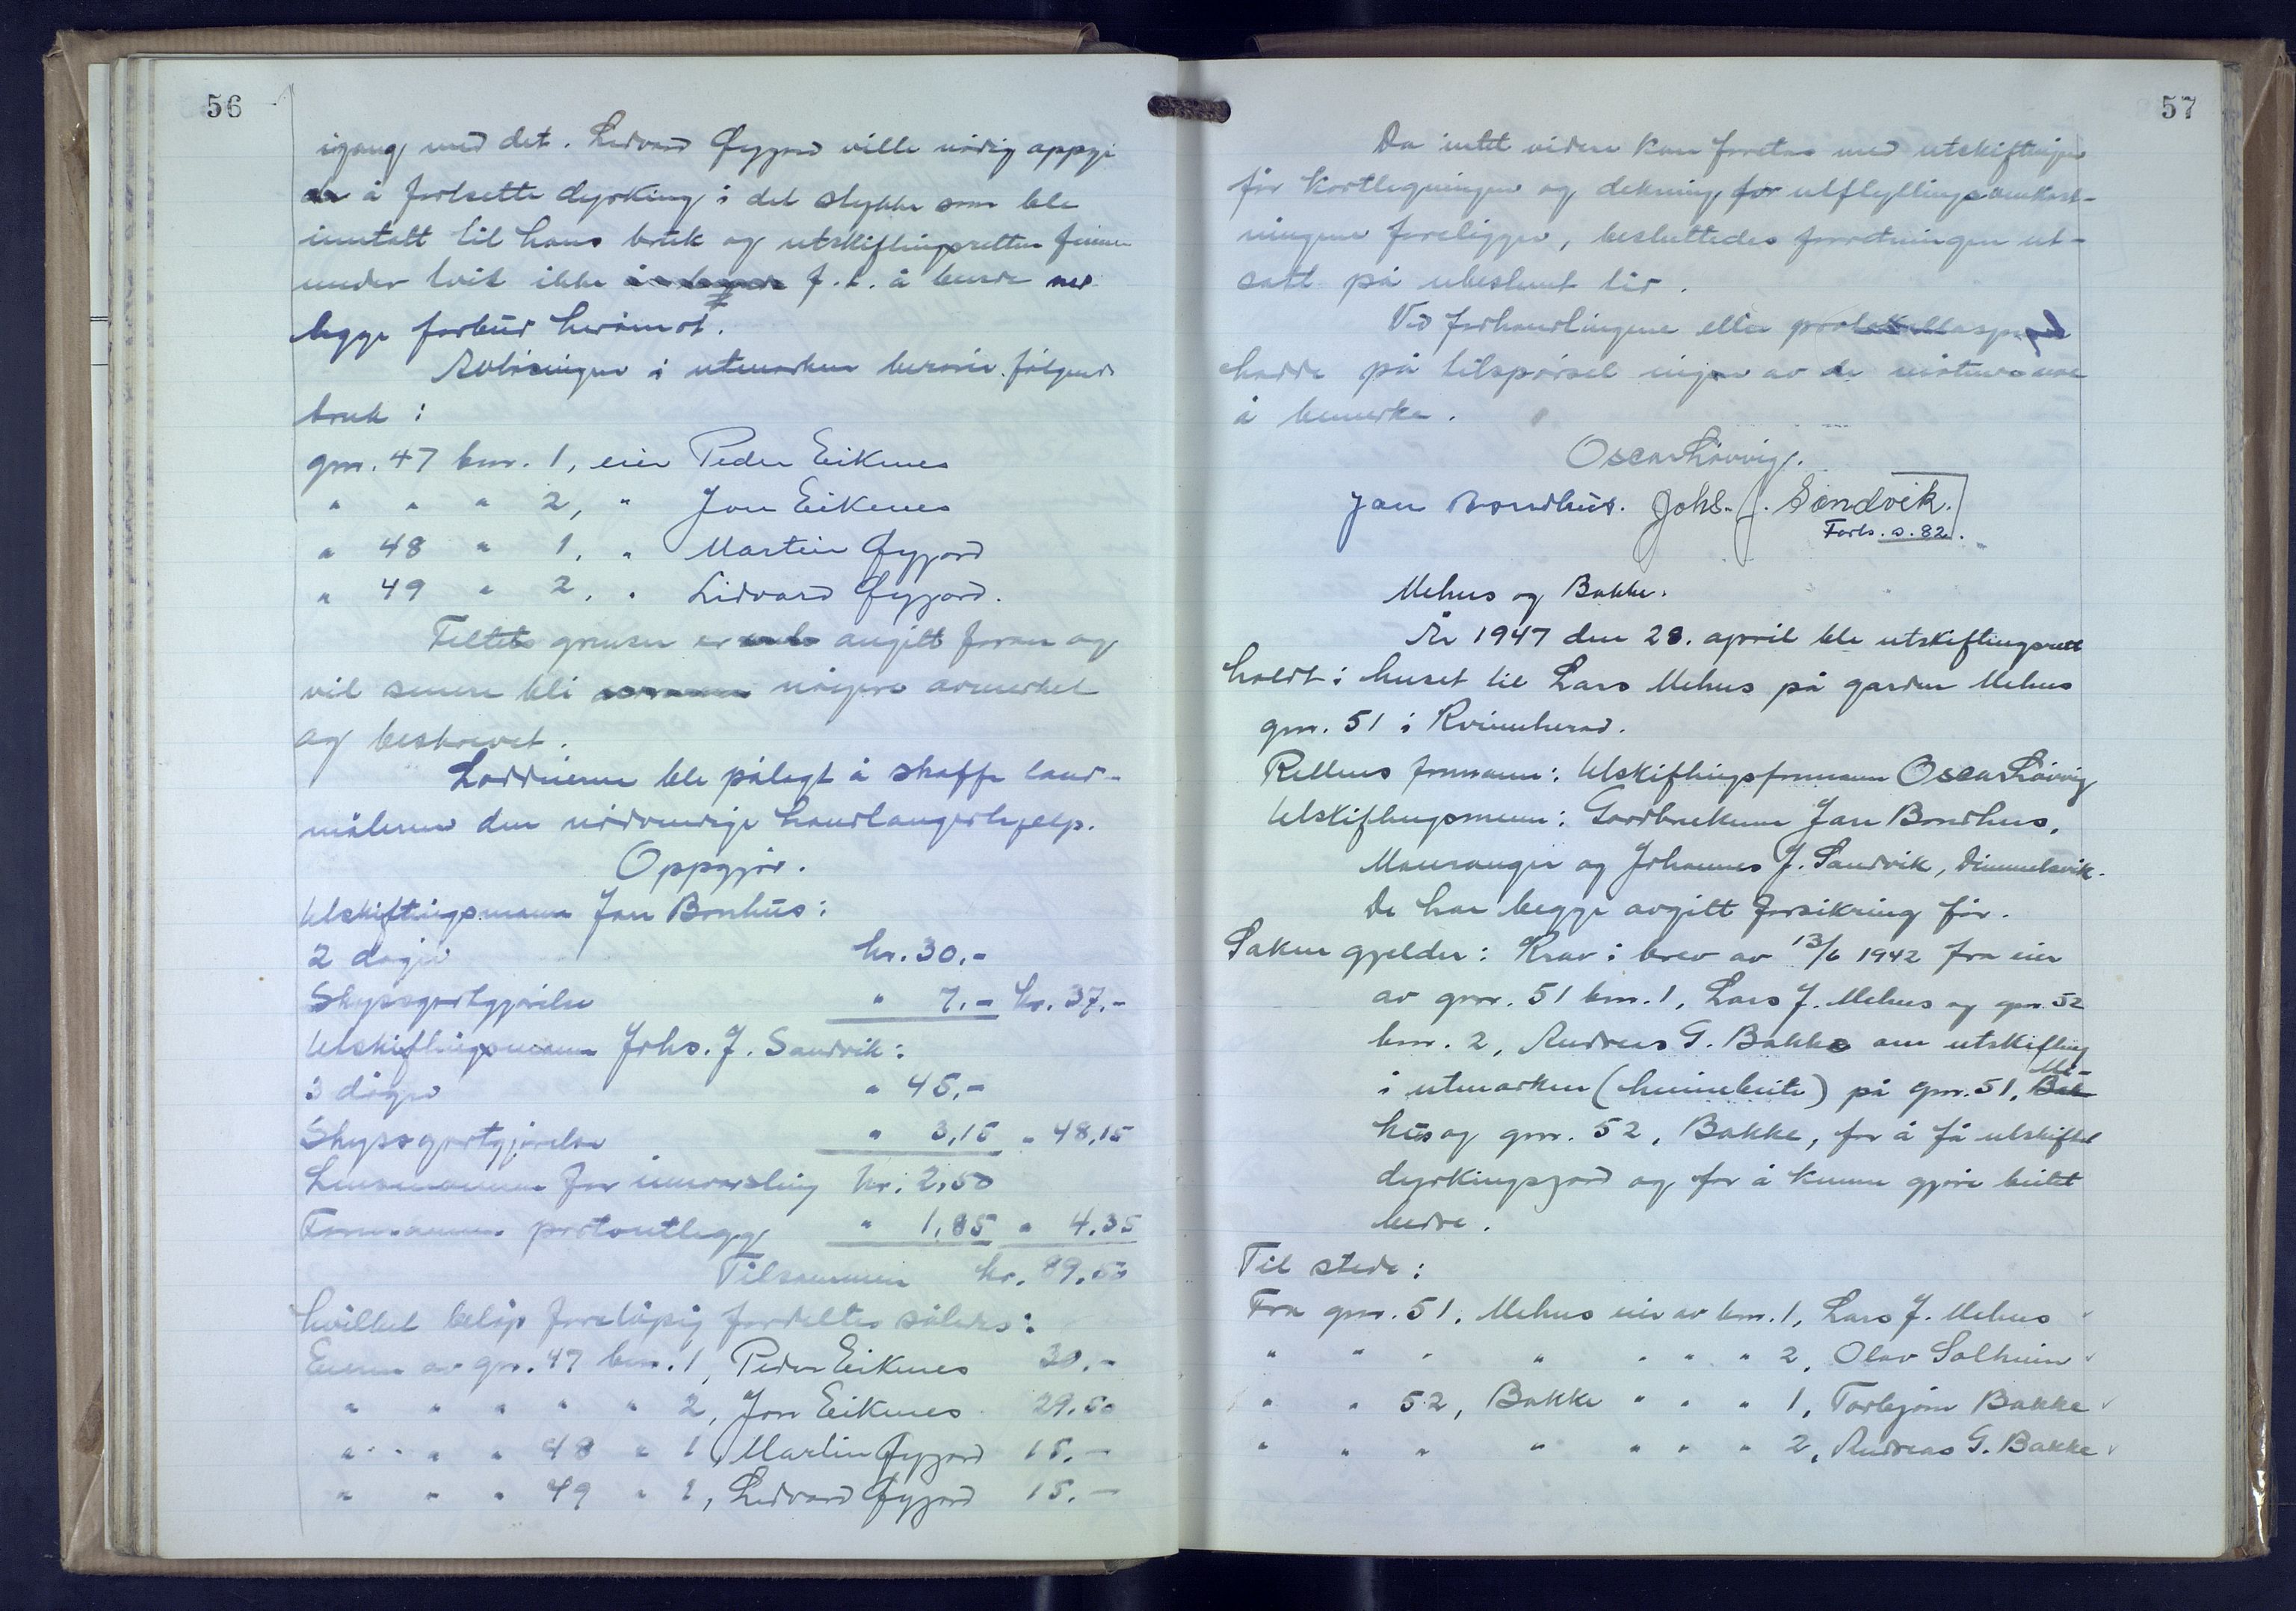 56
igang med det. Lidvard Øygard ville nødig oppgi
å fortsette dyrking i det stykke som ble
inntatt til hans bruk og utskiftingsretten finner
under tvil ikke f.t. å burde ned-
legge forbud herimot.
Avløsningen i utmarken berører følgende
bruk:
gnr. 47 bnr. 1, eier Peder Eiknes
" " " 2, " Jon Eiknes
" 48 " 1, " Martin Øygard
" 49 " 2, " Lidvard Øygard.
Feltets grenser er angitt foran og
vil senere bli nøiere avmerket
og beskrevet.
Loddeierne ble pålagt å skaffe land-
måleren den nødvendige handlangerhjelp.
Oppgjør.
Utskiftingsmann Jan Bonhus:
2 dager kr. 30,-
Skyssgodtgjørelse " 7,- kr. 37,-
Utskiftingsmann Johs. J. Sandvik:
3 dager " 45,-
Skyssgodtgjørelse " 3,15 " 48,15
Lensmannen for innvarsling kr. 2,50
Formannens portoutlegg " 1,85 " 4,35
Tilsammen kr. 89,50
hvilket beløp foreløpig fordeltes således:
Eieren av gnr. 47 bnr. 1, Peder Eiknes 30,-
" " " " " 2, Jon Eiknes 29,50
" " " " 48 " 1, Martin Øygard 15,-
" " " 49 " 2, Lidvard Øygard 15,-
57
Da intet videre kan foretas med utskiftingen
før kartlegningen og dekning for utflyttingsomkost-
ningene foreligger, besluttedes forretningen ut-
satt på ubestemt tid.
Ved forhandlingene eller
hadde på tilspørsel ingen av de møtende noe
å bemerke.
Oscar Løvvig.
Jan Bondhus. Johs. J. Sandvik.
Forts. s. 82.
Mehus og Bakke.
År 1947 den 28. april ble utskiftingsrett
holdt i huset til Lars Mehus på garden Mehus
gnr. 51 i Kvinnherad.
Rettens formann: Utskiftingsformann Oscar Løvvig
Utskiftingsmenn: Gardbrukerne Jan Bondhus,
Mauranger og Johannes J. Sandvik, Dimmelsvik.
De har begge avgitt forsikring før.
Saken gjelder: Krav i brev av 13/6 1942 fra eier
av gnr. 51 bnr. 1, Lars J. Mehus og gnr. 52
bnr. 2, Andreas G. Bakke om utskifting
i utmarken (heimebeite) på gnr. 51, Me-
hus og gnr. 52, Bakke, for å få utskiftet
dyrkingsjord og for å kunne gjøre beitet
bedre.
Til stede:
Fra gnr. 51, Mehus eier av bnr. 1, Lars J. Mehus
" " " " " " " 2, Olav Solheim
" " 52, Bakke " " " 1, Torbjørn Bakke
" " " " " " " 2, Andreas G. Bakke